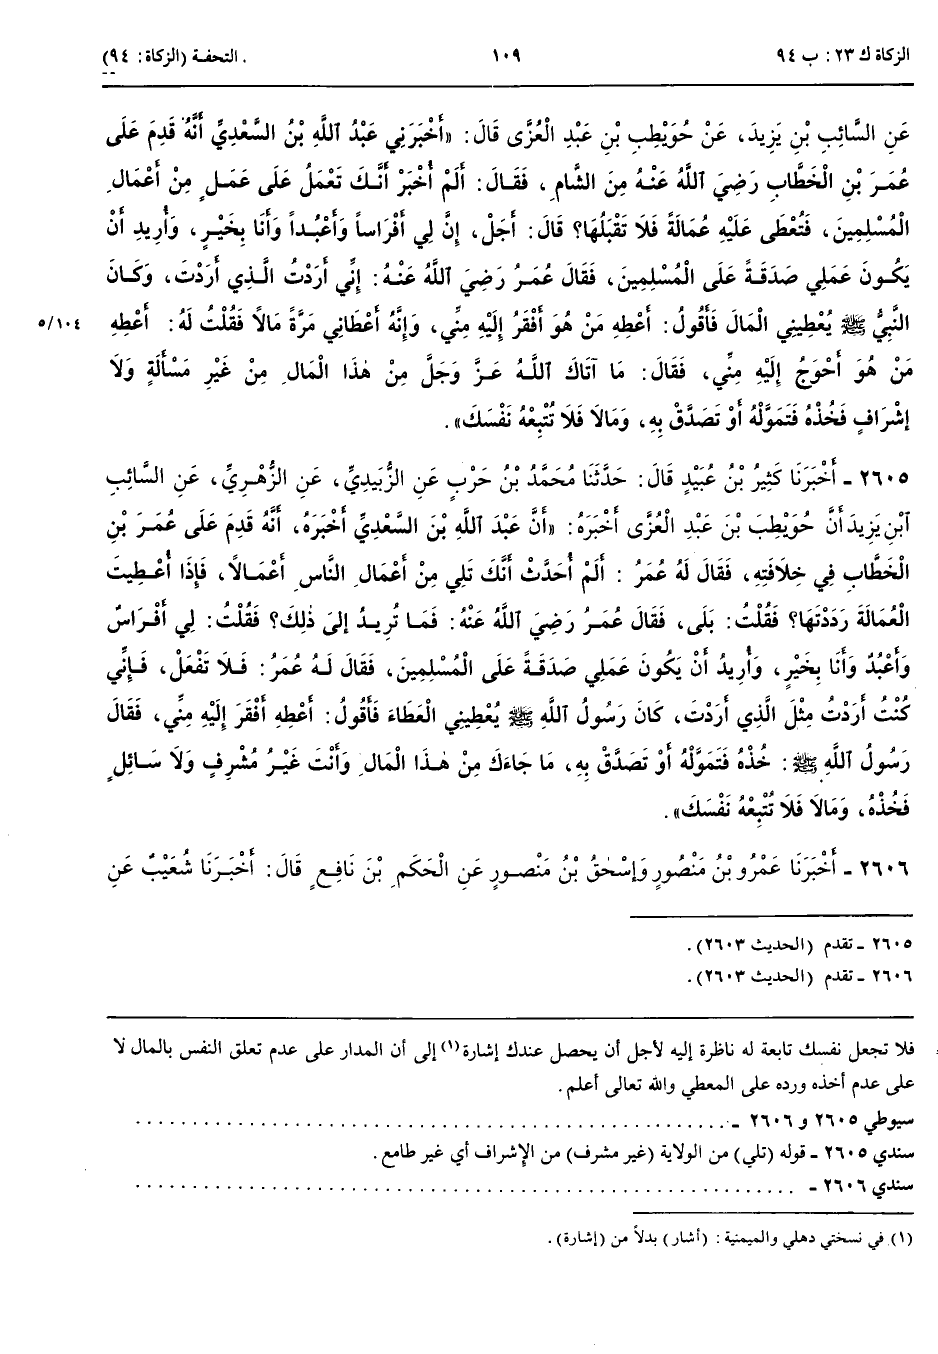 الزكاة ك ٢٣: ب ٩٤ ١٠٩ التحفة (الزكاة: ٩٤)
عَنِ السَّائِبِ بْنِ يَزِيدَ، عَنْ حُوَيْطِبِ بْنِ عَبْدِ الْعُزَّى قَالَ: «أَخْبَرَنِي عَبْدُ ٱللَّهِ بْنُ السَّعْدِيِّ أَنَّهُ قَدِمَ عَلَى
عُمَرَ بْنِ الْخَطَّابِ رَضِيَ ٱللَّهُ عَنْهُ مِنَ الشَّامِ، فَقَالَ: أَلَمْ أُخْبَرْ أَنَّكَ تَعْمَلُ عَلَى عَمَلٍ مِنْ أَعْمَالِ
الْمُسْلِمِينَ، فَتُعْطَى عَلَيْهِ عُمَالَةً فَلَا تَقْبَلُهَا؟ قَالَ: أَجَلْ، إِنَّ لِي أَفْرَاساً وَأَعْبُداً وَأَنَا بِخَيْرٍ، وَأُرِيدِ أَنْ
يَكُونَ عَمَلِي صَدَقَةً عَلَى الْمُسْلِمِينَ، فَقَالَ عُمَرُ رَضِيَ ٱللَّهُ عَنْهُ: إِنِّي أَرَدْتُ الَّذِي أَرَدْتَ، وَكَانَ
النَّبِيُّ ﷺ يُعْطِينِي الْمَالَ فَأَقُولُ: أَعْطِهِ مَنْ هُوَ أَفْقَرُ إِلَيْهِ مِنِّي، وَإِنَّهُ أَعْطَانِي مَرَّةً مَالاً فَقُلْتُ لَهُ: أَعْطِهِ ٥/١٠٤
مَنْ هُوَ أَحْوَجُ إِلَيْهِ مِنِّي، فَقَالَ: مَا آتَاكَ ٱللَّهُ عَزَّ وَجَلَّ مِنْ هٰذَا الْمَالِ مِنْ غَيْرِ مَسْأَلَةٍ وَلَا
إِشْرَافٍ فَخُذْهُ فَتَمَوَّلْهُ أَوْ تَصَدَّقْ بِهِ، وَمَالَا فَلَا تُتْبِعْهُ نَفْسَكَ».
٢٦٠٥ ـ أَخْبَرَنَا كَثِيرُ بْنُ عُبَيْدٍ قَالَ: حَدَّثَنَا مُحَمَّدُ بْنُ حَرْبٍ عَنِ الزُّبَيْدِيِّ، عَنِ الزُّهْرِيِّ، عَنِ السَّائِبِ
ٱبْنِ يَزِيدَ أَنَّ حُوَيْطِبَ بْنَ عَبْدِ الْعُزَّى أَخْبَرَهُ: «أَنَّ عَبْدَ ٱللَّهِ بْنَ السَّعْدِيِّ أَخْبَرَهُ، أَنَّهُ قَدِمَ عَلَى عُمَرَ بْنِ
الْخَطَّابِ فِي خِلَافَتِهِ، فَقَالَ لَهُ عُمَرُ: أَلَمْ أُحَدَّثْ أَنَّكَ تَلِي مِنْ أَعْمَالِ النَّاسِ أَعْمَالاً، فَإِذَا أُعْطِيتَ
الْعُمَالَةَ رَدَدْتَهَا؟ فَقُلْتُ: بَلَى، فَقَالَ عُمَرُ رَضِيَ ٱللَّهُ عَنْهُ: فَمَا تُرِيدُ إِلَى ذٰلِكَ؟ فَقُلْتُ: لِي أَفْرَاسٌ
وَأَعْبُدٌ وَأَنَا بِخَيْرٍ، وَأُرِيدُ أَنْ يَكُونَ عَمَلِي صَدَقَةً عَلَى الْمُسْلِمِينَ، فَقَالَ لَهُ عُمَرُ: فَلَا تَفْعَلْ، فَإِنِّي
كُنْتُ أَرَدْتُ مِثْلَ الَّذِي أَرَدْتَ، كَانَ رَسُولُ ٱللَّهِ ﷺ يُعْطِينِي الْعَطَاءَ فَأَقُولُ: أَعْطِهِ أَفْقَرَ إِلَيْهِ مِنِّي، فَقَالَ
رَسُولُ ٱللَّهِ ﷺ: خُذْهُ فَتَمَوَّلْهُ أَوْ تَصَدَّقْ بِهِ، مَا جَاءَكَ مِنْ هٰذَا الْمَالِ وَأَنْتَ غَيْرُ مُشْرِفٍ وَلَا سَائِلٍ
فَخُذْهُ، وَمَالَا فَلَا تُتْبِعْهُ نَفْسَكَ».
٢٦٠٦ ـ أَخْبَرَنَا عَمْرُو بْنُ مَنْصُورٍ وَإِسْحٰقُ بْنُ مَنْصُورٍ عَنِ الْحَكَمِ بْنِ نَافِعٍ قَالَ: أَخْبَرَنَا شُعَيْبٌ عَنِ
٢٦٠٥ ـ تقدم (الحديث ٢٦٠٣).
٢٦٠٦ ـ تقدم (الحديث ٢٦٠٣).
فلا تجعل نفسك تابعة له ناظرة إليه لأجل أن يحصل عندك إشارة(١) إلى أن المدار على عدم تعلق النفس بالمال لا
على عدم أخذه ورده على المعطي والله تعالى أعلم.
سيوطي ٢٦٠٥ و ٢٦٠٦ ـ ........................................
سندي ٢٦٠٥ ـ قوله (تلي) من الولاية (غير مشرف) من الإشراف أي غير طامع.
سندي ٢٦٠٦ ـ ........................................
(١) في نسختي دهلي والميمنية: (أشار) بدلاً من (إشارة).